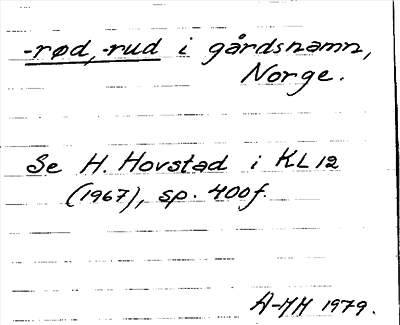 -rød, -rud i gårdsnamn,
Norge.
Se H. Hovstad i KL 12
(1967), sp. 400f.
A-MH 1979.